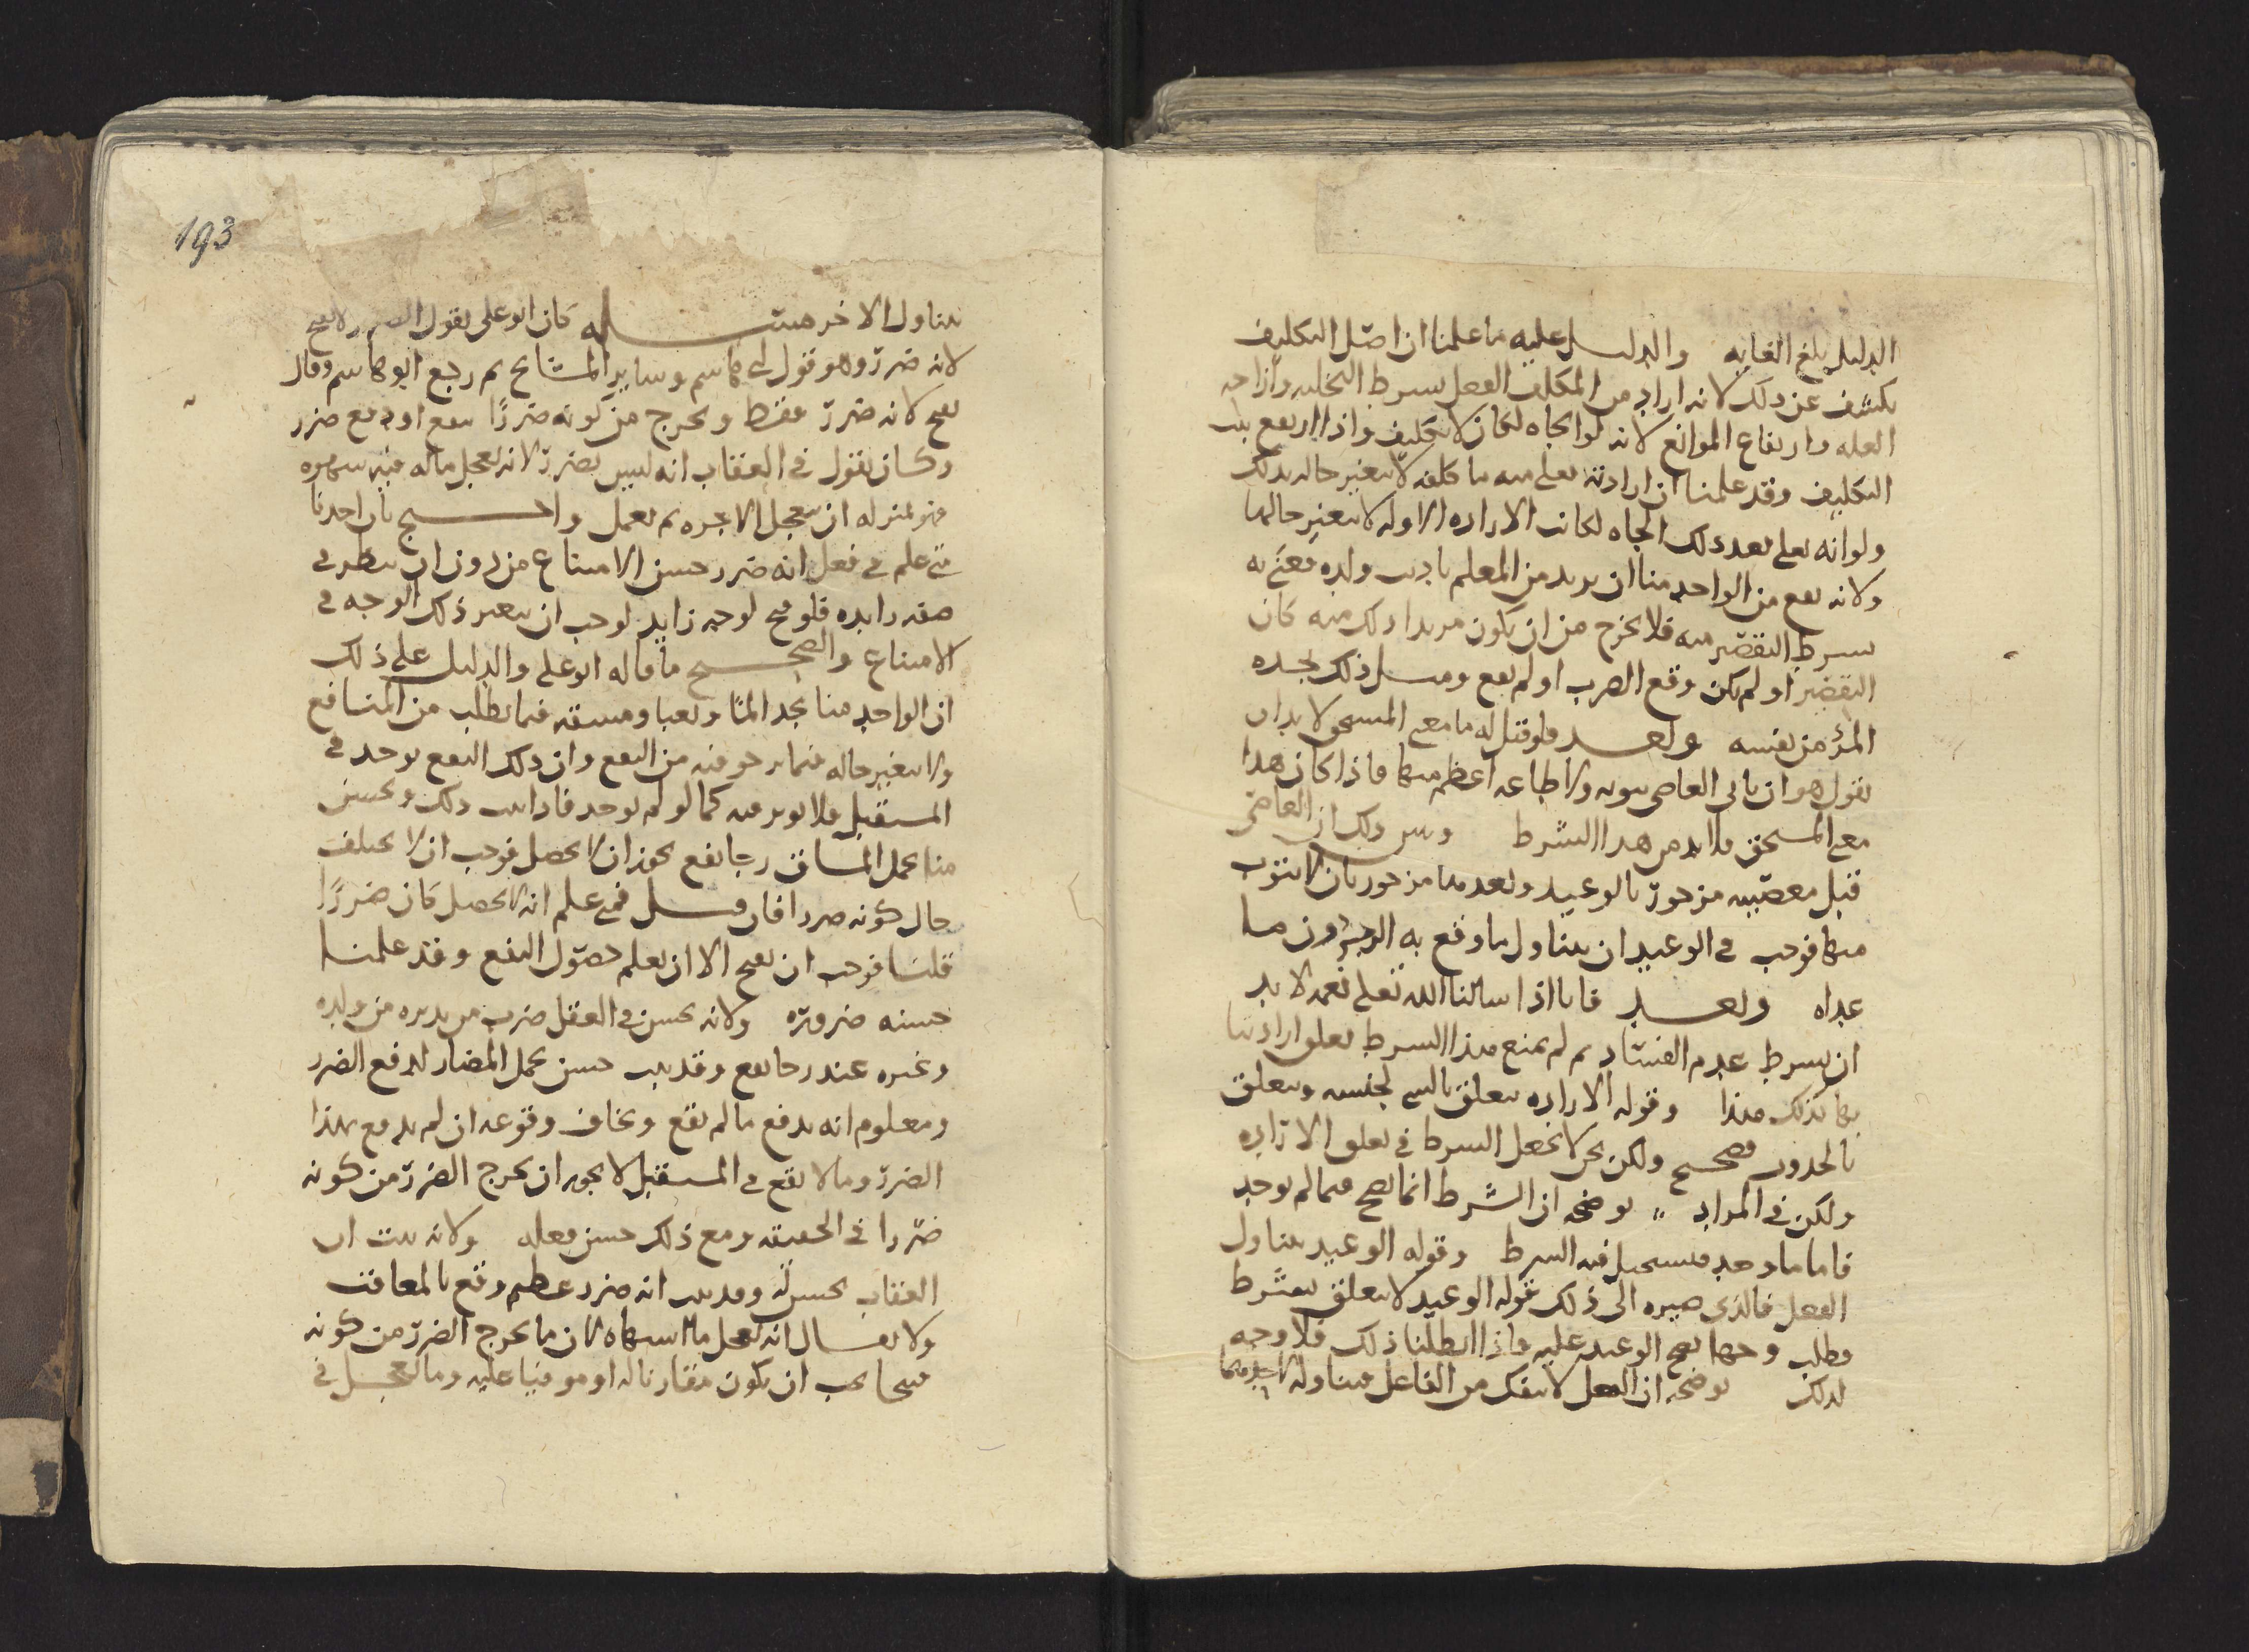 الدليل بلغ الغايه والدليل عليه ما علمنا ان اصل التكليف
يكشف عن ذلك لانه اراد من المكلف الفعل بشرط التخليه وازاحه
العله وارتفاع الموانع لانه لو الجاه لكان لا تكليف واذا ارتفع
التكليف وقد علمنا ان ارادته تعلى منه ما كلفه لا يتغير حاله بذلك
ولو انه تعلى بعد ذلك الجاه لكانت الاراده الاوله لا يتغير حالها
ولانه يقع من الواحد منا ان يريد من المعلم تاديب ولده
بشرط التقصير منه فلا يخرج من ان يكون مريدا لذلك منه كان
التقصير او لم يكن وقع الضرب او لم يقع ومثل ذلك يجده
المرء من نفسه وبعد فلو قيل له ما معنى المستحق لا بد ان
يقول هو ان ياتى العاصى بتوبه ولا طاعه اعظم منها فاذا كان هذا
معنى المستحق فلا بد من هذا الشرط وبين ذلك ان العاصى
قبل معصيته مزجور بالوعيد وبعدها مزجور بان لا يتوب
منها فوجب فى الوعيد ان يتناول ما وقع به الزجر دون ما
عداه وبعد فانا اذا سالنا الله تعلى نعمه لا بد
ان نشرط عدم الفساد ثم لم يمنع هذا الشرط تعلق ارادتنا
بها كذلك هذا وقوله الاراده تتعلق بالشى لجنسه وتتعلق
بالحدوث فصحيح ولكن نحن لا نجعل الشرط فى تعلق الاراده
ولكن فى المراد يوضحه ان الشرط انما يصح فيما لم يوجد
فاما ما وجد فيستحيل فيه الشرط وقوله الوعيد يتناول
الفعل فالذى صيره الى ذلك قوله الوعيد لا يتعلق بشرط
فطلب وجها يصح الوعيد عليه فاذا ابطلنا ذلك فلا وجه
لذلك يوضحه ان الفعل لا ينفك من الفاعل فيتناوله
193
يتناول الاخر مسئله كان ابو على يقول الضرر لا يقبح
لانه ضرر وهو قول ابى هاشم وساير المشايخ ثم رجع ابو هاشم وقال
يقبح لانه ضرر فقط ويخرج من كونه ضررا بنفع او دفع ضرر
وكان يقول فى العقاب انه ليس بضرر لانه تعجل ماله فيه شهوه
فهو بمنزله ان يتعجل الاجره ثم يعمل واحتج بان احدنا
متى علم فى فعل انه ضرر حسن الامتناع من دون ان ينظر فى
صفه زايده فلو قبح لوجه زايد لوجب ان يعتبر ذلك الوجه فى
الامتناع والصحيح ما قاله ابو على والدليل على ذلك
ان الواحد منا يجد الما وتعبا ومشقه فيما يطلب من المنافع
ولا يتغير حاله فيما يرجو فيه من النفع وان ذلك النفع يوجد فى
المستقبل فلا يوثر فيه كما لو لم يوجد فاذا ثبت ذلك ويحسن
منا تحمل المشاق رجا نفع يجوز ان لا يحصل فوجب ان لا يختلف
حال كونه ضررا فان قيل فمتى علم انه لا يحصل كان ضررا
قلنا فوجب ان يقبح الا ان يعلم حصول النفع وقد علمنا
حسنه ضروره ولانه يحسن فى العقل ضرب من يدبره من ولده
وغيره عند رجا نفع وقد ثبت حسن تحمل المضار لدفع الضرر
ومعلوم انه يدفع ما لم يقع ويخاف وقوعه ان لم يدفع بهذا
الضرر وما لا يقع فى المستقبل لا يجوز ان يخرج الضرر من كونه
ضررا فى الحقيقه ومع ذلك حسن فعله ولانه ثبت ان
العقاب يحسن له وقد ثبت انه ضرر عظيم وقع بالمعاقب
ولا يقال انه تعجل ما اشتهاه لان ما يخرج الضرر من كونه
قبيحا يجب ان يكون مقارنا له او موفيا عليه وما تعجل فى